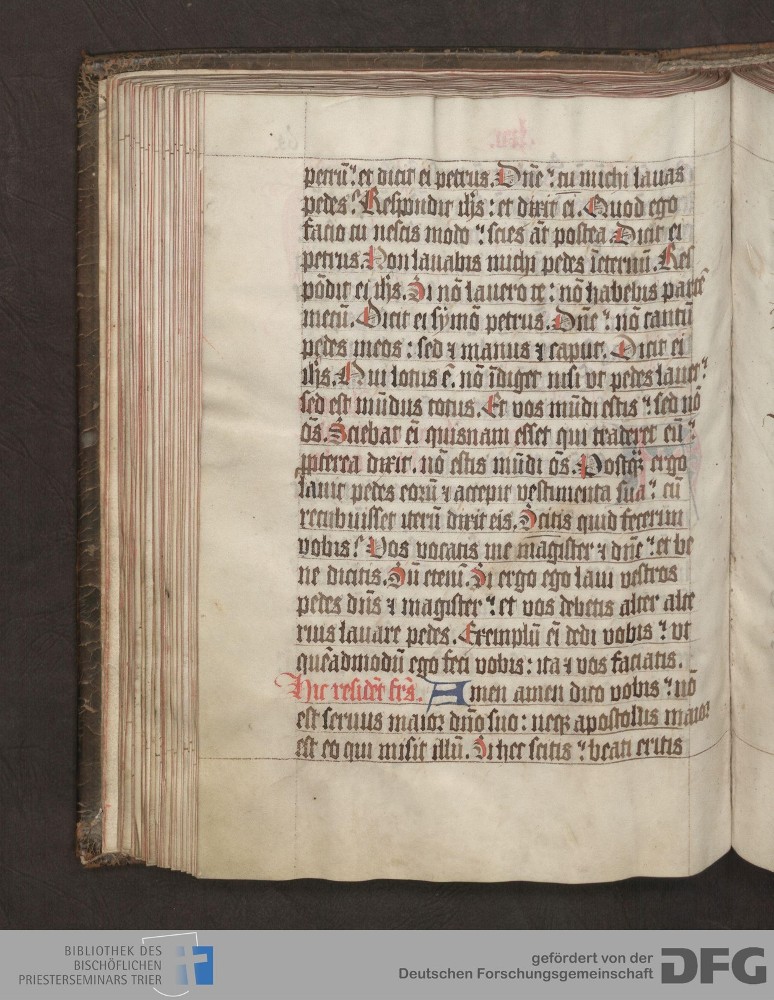 petrū: et dicit ei petrus. Dn̄e: tu michi lauas
pedes: Respondit ih̄s: et dixit ei. Quod ego
facio tu nescis modo: scies āt postea. Dicit ei
petrus. Non lauabis michi pedes īeternū. Res
pōdit ei ih̄s. Si nō lauero te: nō habebis partē
mecū. Dicit ei symō petrus. Dn̄e: nō tantū
pedes meos: sed ⁊ manus ⁊ caput. Dicit ei
ih̄s. Qui lotus ē. nō īdiget nisi vt pedes lauet:
sed est mūdus totus. Et vos mūdi estis: sed nō
ōs. Sciebat ei̅ quisnam esset qui traderet eū:
ꝓpterea dixit. nō estis mūdi ōs. Postqꝫ ergo
lauit pedes eorū ⁊ accepit vestimenta sua: cū
recubuisset iterū dixit eis. Scitis quid fecerim
vobis: Vos vocatis me magister ⁊ dn̄e: et be
ne dicitis. Sū etenī. Si ergo ego laui vestros
pedes dn̄s ⁊ magister: et vos debetis alter alte
rius lauare pedes. Exemplū ei̅ dedi vobis: vt
quēadmodū ego feci vobis: ita ⁊ vos faciatis.
Hic resident frs̄. Amen amen dico vobis: nō
est seruus maior dn̄o suo: neqꝫ apostolus maior
est eo qui misit illū. Si hec scitis: beati eritis
BIBLIOTHEK DES
BISCHÖFLICHEN
PRIESTERSEMINARS TRIER
gefördert von der
Deutschen Forschungsgemeinschaft
DFG